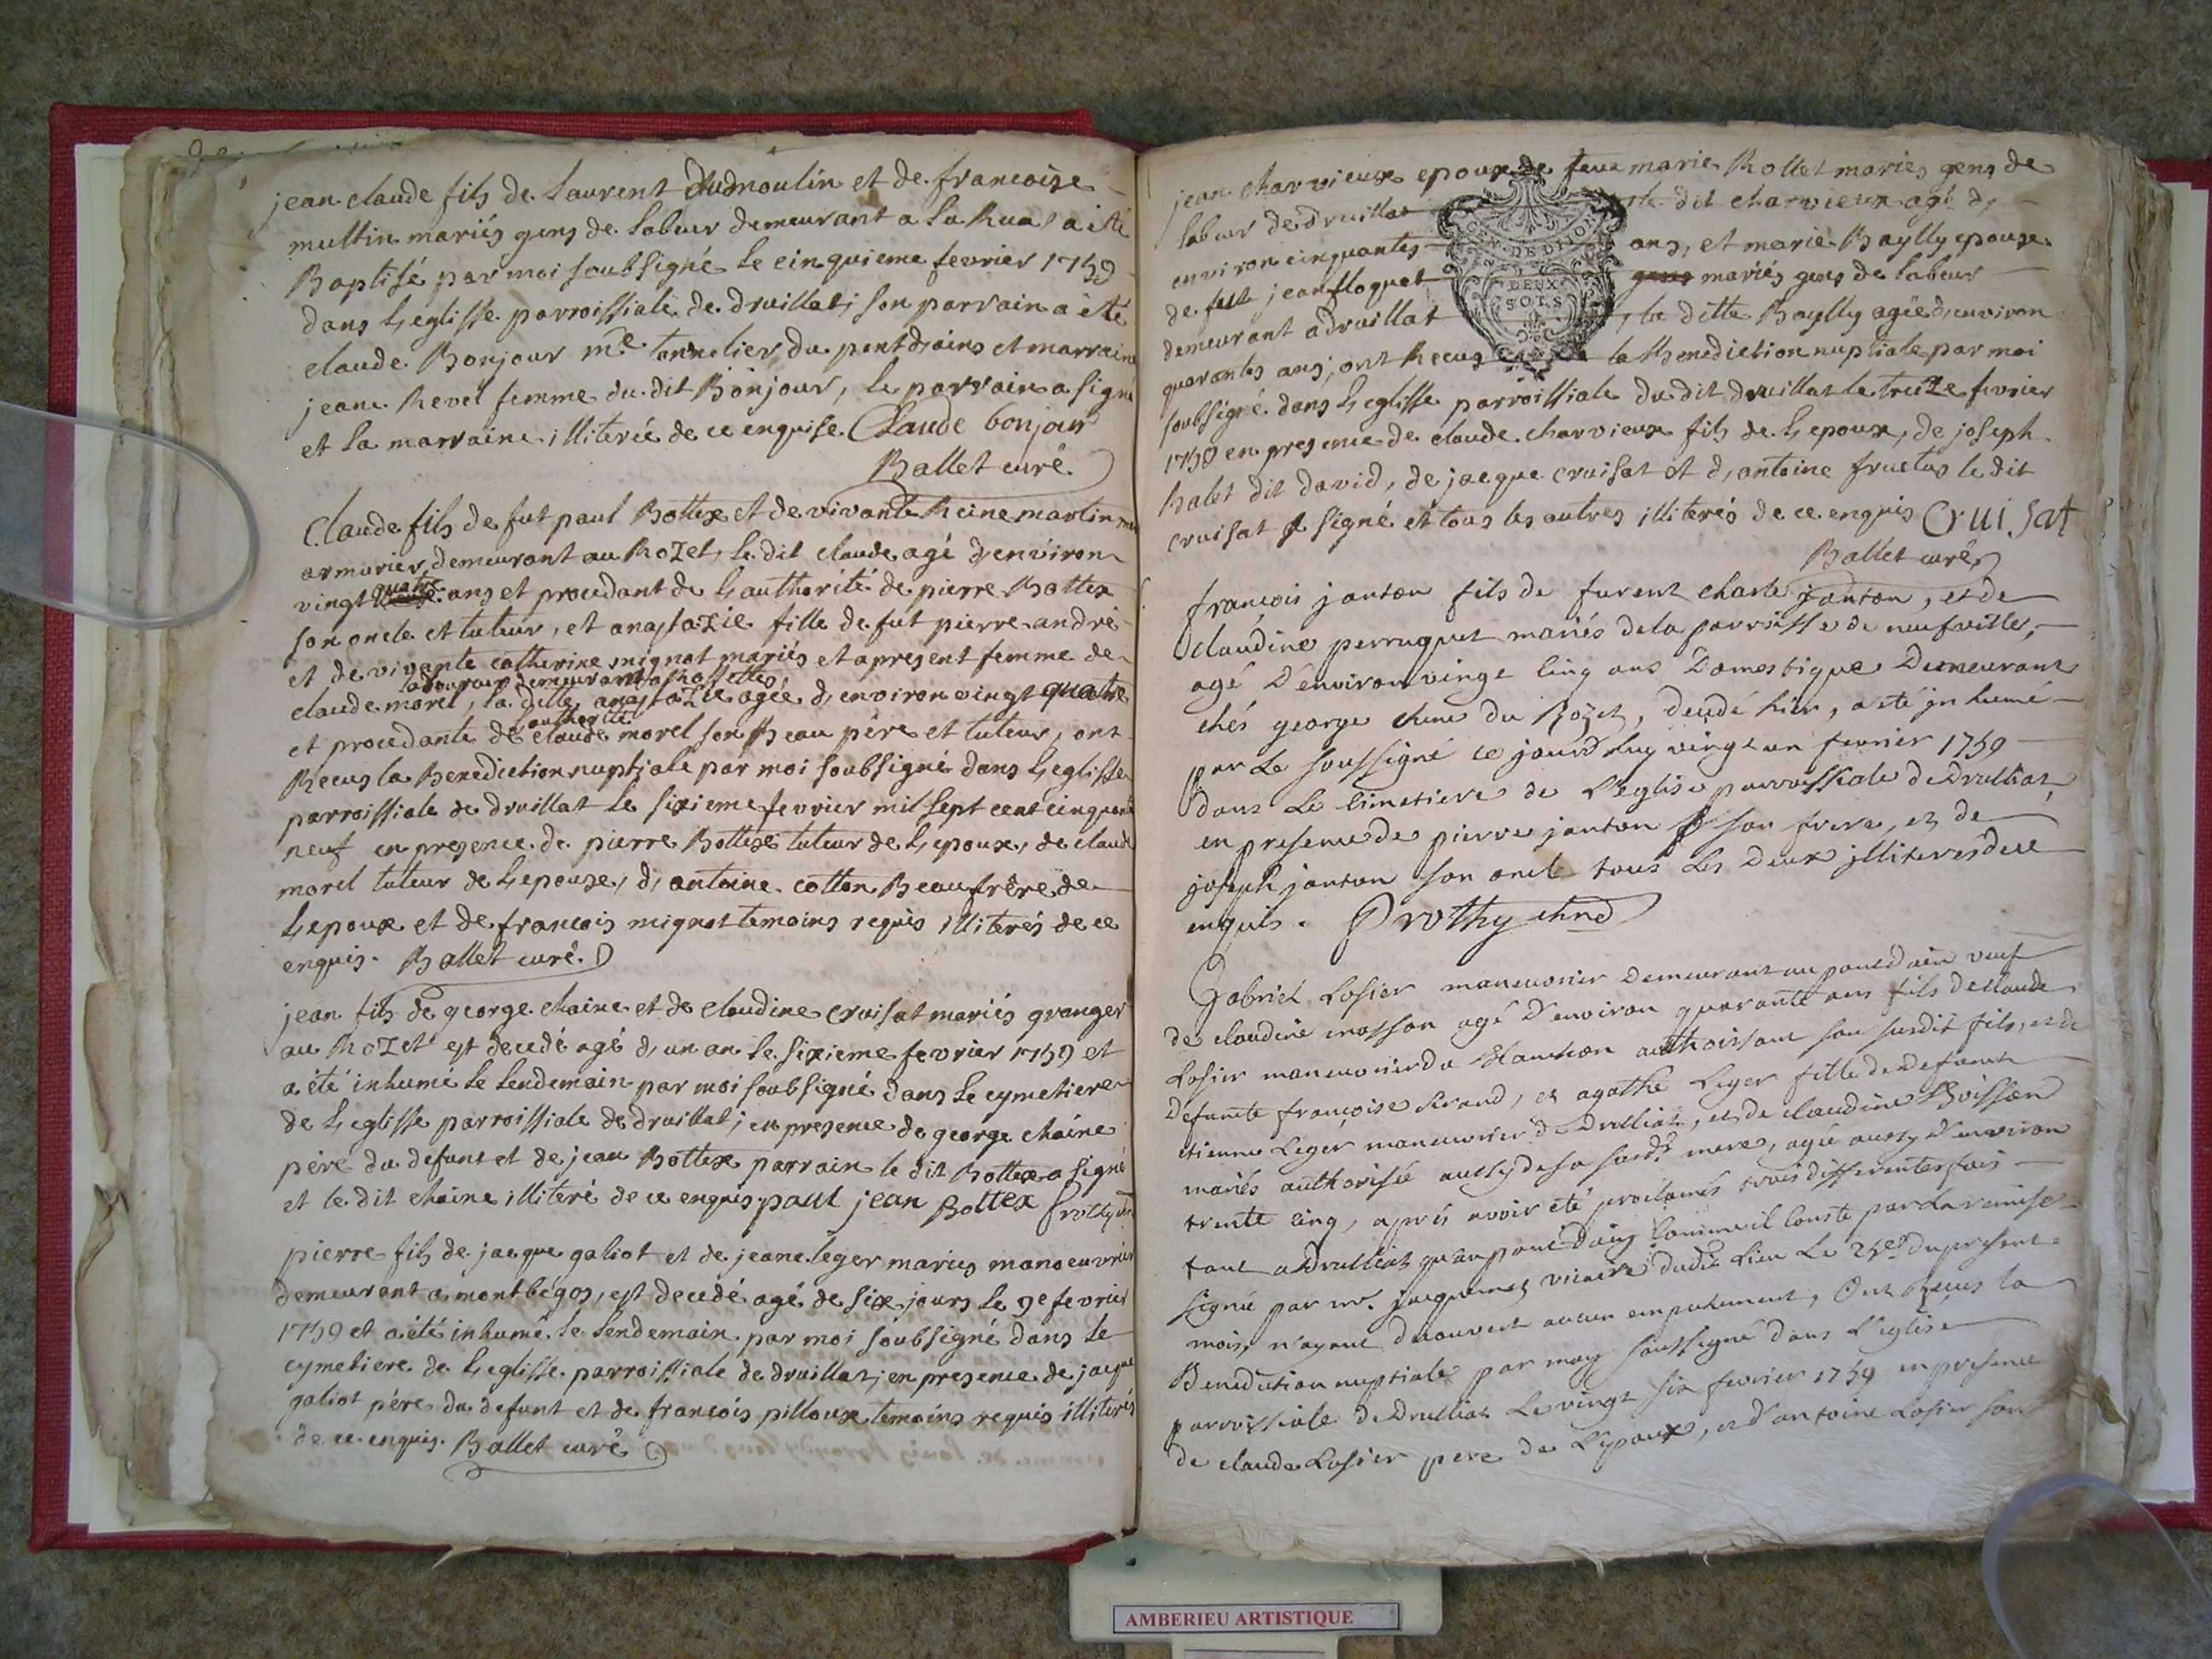 jean claude fils de laurent Dudmoulin et de francoise
multin mariés gens de labeur demeurant a la Rua a été
Baptisé par moi soubsigné le cinquieme fevrier 1759
dans l'eglisse parroissiale de druillat, son parrain a été
claude Bonjour me tonnelier du pont d'ains et marraine
jeane Revel femme du dit Bonjour, le parrain a signé
et la marraine illiterée de ce enquise. Claude bonjour
Ballet curé.
Claude fils de fut paul Bottex et de vivante Reine martin
armurier demeurant au Rozet, le dit claude agé d'environ
vingt quatre ans et procedant de l'authorité de pierre Bottex
son oncle et tuteur, et anastazie fille de fut pierre andré
et de vivante catherine mignot mariés et apresent femme de
laboureur demeurant a
claude morel, la ditte anastazie agée d'environ vingt quatre
l'authorité
et procedante de claude morel son Beau père et tuteur, ont
Recus la Benediction nuptiale par moi soubsigné dans l'eglisse
parroissiale de druillat le sixieme fevrier mil sept cent cinquante
neuf en presence de pierre Bottex tuteur de l'epoux, de claude
morel tuteur de l'epouse, d'antoine cotton Beaufrêre de
l'epoux et de francois mignot temoins requis illiterés de ce
enquis. Ballet curé.
jean fils de george chaine et de claudine cruisat mariés granger
au Rozet est decedé agé d'un an le sixieme fevrier 1759 et
a été inhumé le lendemain par moi soubsigné dans le cymetiere
de l'eglisse parroissiale de druillat, en presence de george chaine
père du defunt et de jean Bottex parrain le dit Bottex a signé
et le dit chaine illiteré de ce enquis paul jean Bottex
pierre fils de jacque galiot et de jeane leger mariés manoeuvrier
demeurant a montbégos, est decedé agé de six jours le 9e fevrier
1759 et a été inhumé le lendemain par moi soubsigné dans le
cymetiere de l'eglisse parroissiale de druillat, en presence de jacque
galiot père du defunt et de francois pilloux temoins requis illiterés
de ce enquis. Ballet curé
jean charvieux epoux de feue marie Rollet mariés gens de
labeur de druillat le dit charvieux agé d'
environ cinquantes ans, et marie Baylly epouse
de fut jean floquet gens mariés gens de labeur
demeurant a druillat, la ditte Baylly agée d'environ
quarantes ans, ont Recus la Benediction nuptiale par moi
soubsigné dans l'eglisse parroissiale du dit druillat le treize fevrier
1759 en presence de claude charvieux fils de l'epoux, de joseph
halet dit david, de jacque cruisat et d'antoine fructus le dit
cruisat a signé et tous les autres illiterés de ce enquis Cruisat
Ballet curé
GEN. DE DIJON
DEUX
SOTS
françois janton fils de furent charle janton, et de
claudine perruquet mariés de la parroisse de neufville,
agé D'environ vingt cinq ans Domestique Demeurant
chés george chene du Rozet, decedé hier, a eté jnhumé
par Le soussigné ce jourd'huy vingt un fevrier 1759
dans Le Cimetiere de L'eglise parroissiale de Drulliat,
en presence de pierre janton son frere, et de
joseph janton son oncle tous Les Deux jlliterés de ce
enquis. Prothy
Gabriel Losier maneuvrier Demeurant au pont d'ain veuf
de claudine masson agé D'environ quarante ans fils de claude
Losier maneuvrier authorisant son susdit fils, et de
defuncte françoise, et agathe Leger fille de defunct
etienne Leger maneuvrier de Drulliat, et de claudine Buisson
mariés authorisée aussy de sa sus de mere, agée aussy D'environ
trente cinq, aprés avoir été proclamés trois differentes fois
tant a Drulliat qu'au pont Dain comme il Conste par La remise
signée par mr. jacquemet vicaire dudit Lieu Le 25e Du present
mois, n'ayant decouvert aucun empechement, Ont Reçus la
Benediction nuptiale par moy soussigné Dans L'eglise
parroissiale de Drulliat Le vingt six fevrier 1759 en presence
de claude Losier pere de L'epoux, et d'antoine Losier son
AMBERIEU ARTISTIQUE